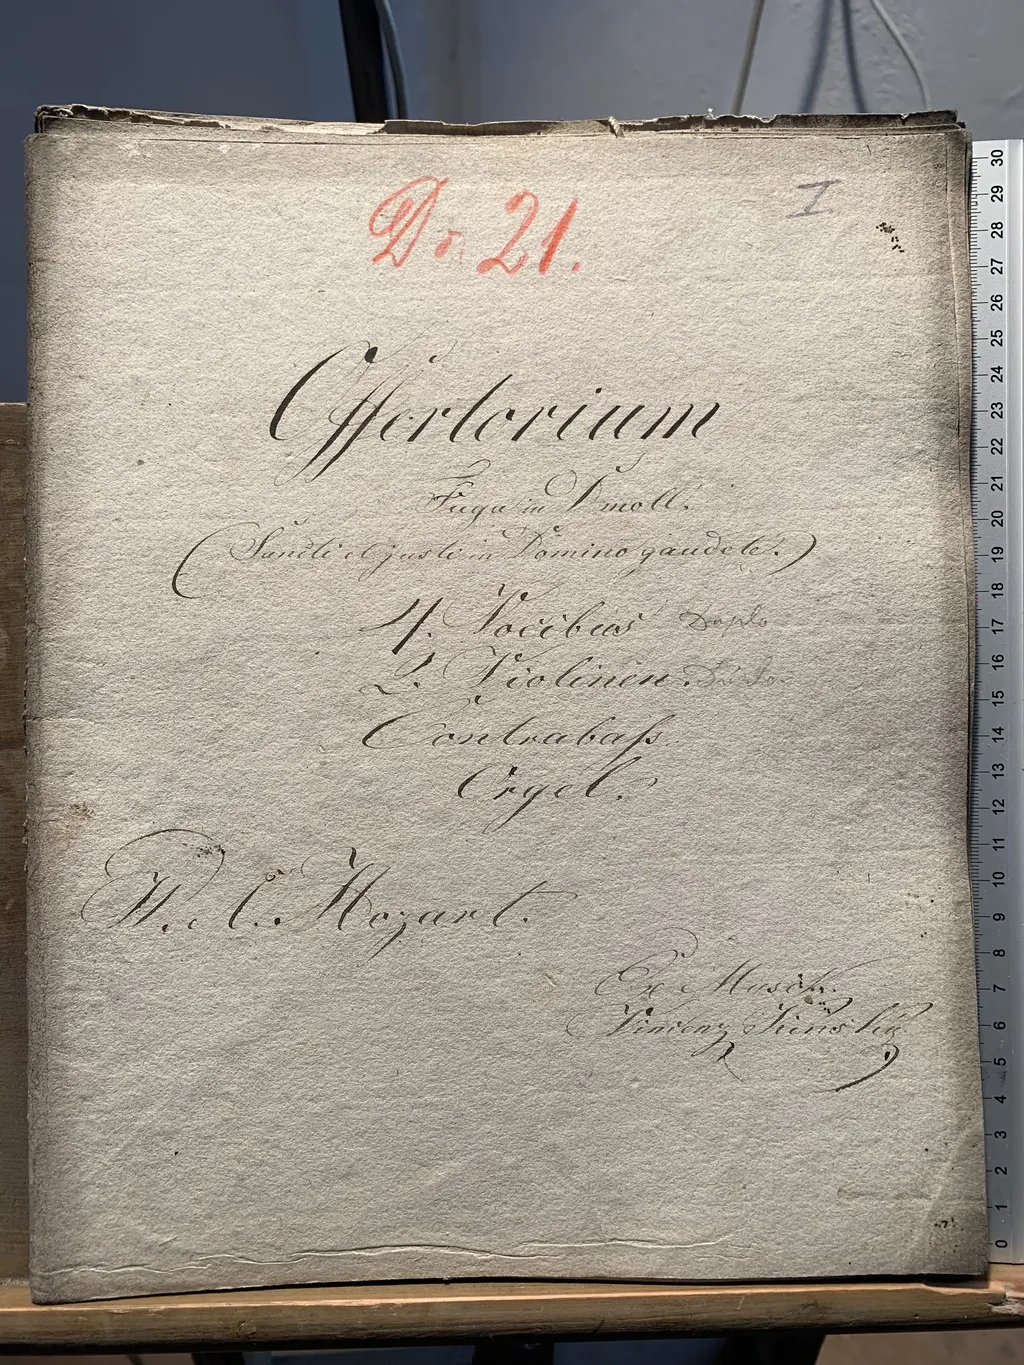 No. 21.
I.
Offertorium
Fuga in D moll.
(Sancti et justi in Domino gaudete.)
4. Vocibus Duplo
2. Violinen.
Contrabaſs
Orgel.
W. A. Mozart.
Ex Musik.
Vincenz
30
29
28
27
26
25
24
23
22
21
20
19
18
17
16
15
14
13
12
11
10
9
8
7
6
5
4
3
2
1
0